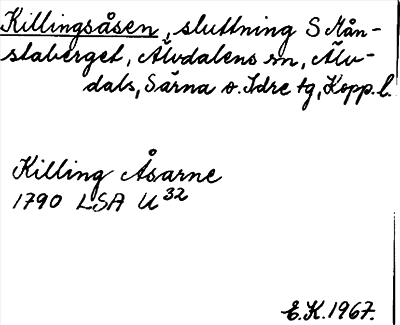 Killingsåsen, sluttning S Mån-
staberget, Älvdalens sn, Älv-
dals, Särna o. Idre tg, Kopp. l.
Killing Åsarne
1790 LSA U 32
E.K. 1967.